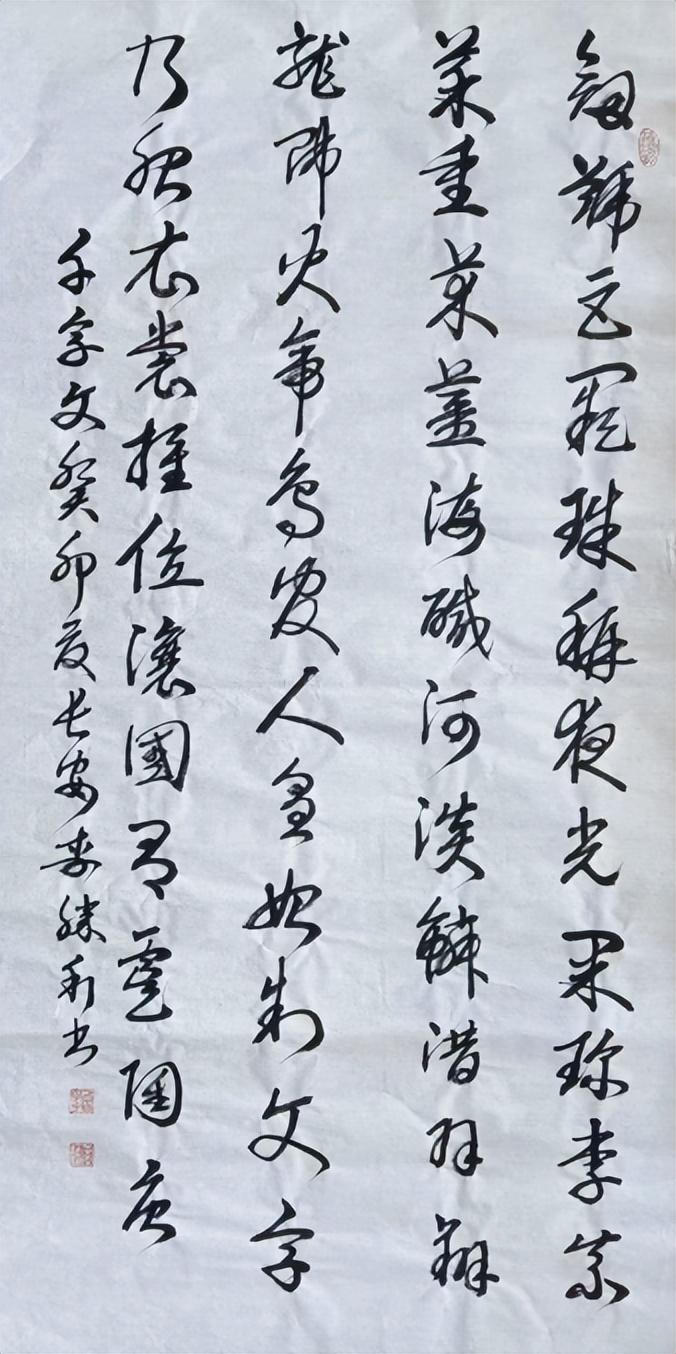 劍號巨闕珠稱夜光果珍李柰
菜重芥薑海鹹河淡鱗潛羽翔
龍師火帝鳥官人皇始制文字
乃服衣裳推位讓國有虞陶唐
千字文癸卯夏長安勝利書